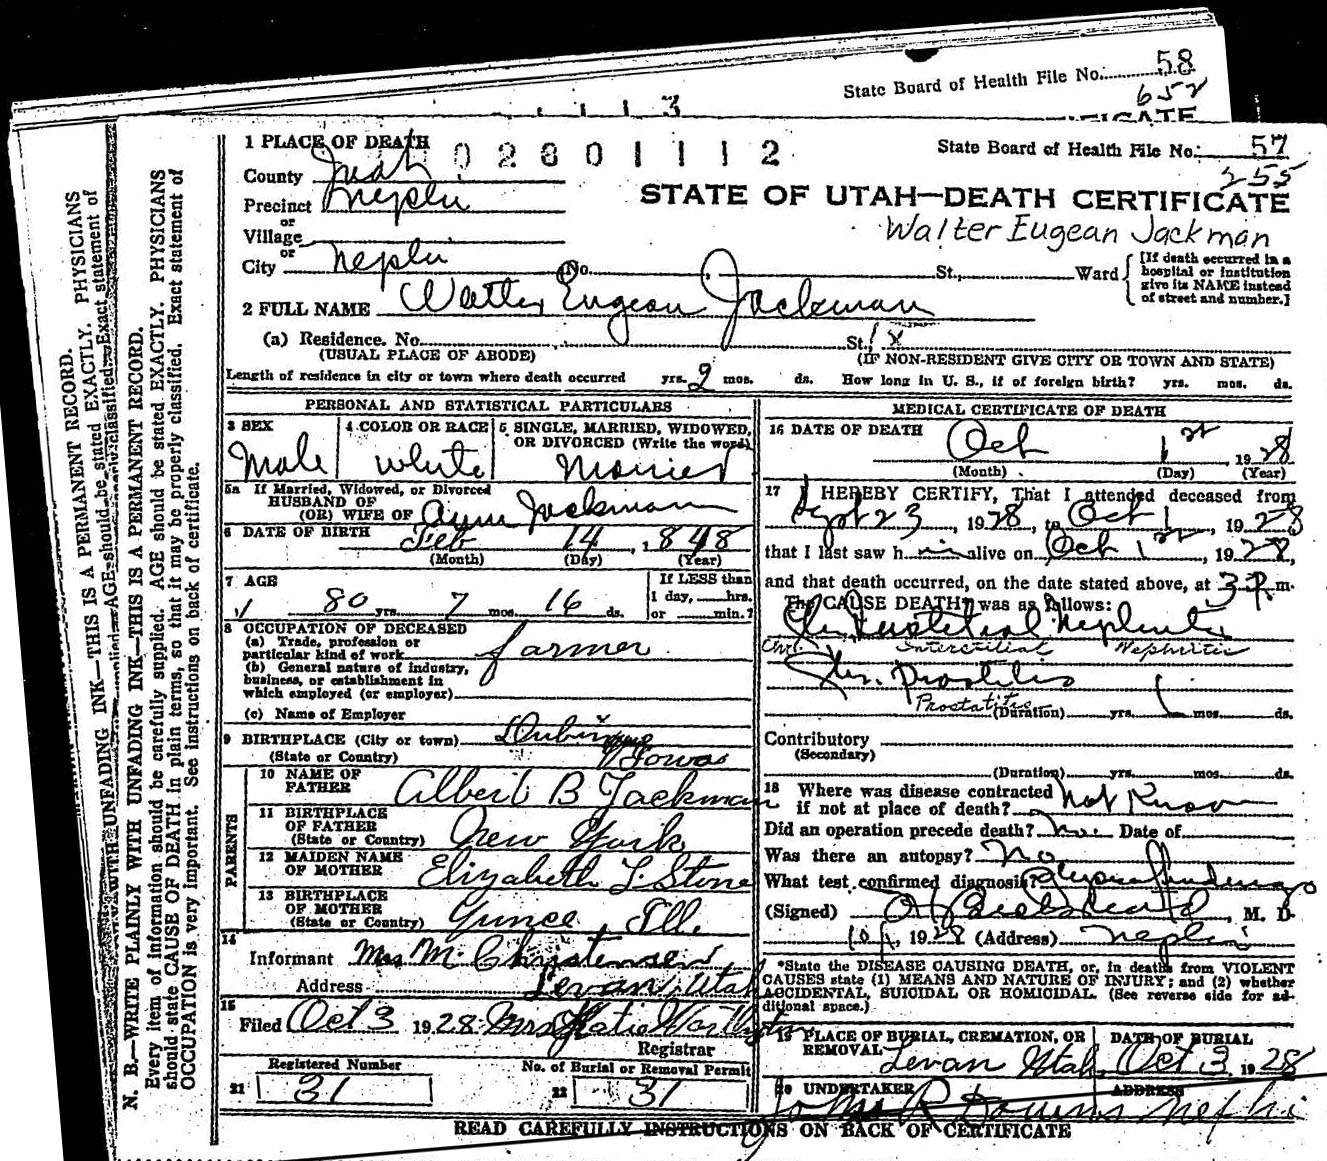 State Board of Health File No. 58
652
1 1 1 3
State Board of Health File No. 57
255
1 PLACE OF DEATH
0 2 6 0 1 1 1 2
County Juab
STATE OF UTAH—DEATH CERTIFICATE
Precinct Nephi
or
Village
Walter Eugean Jackman
or
City Nephi No. St., Ward
[If death occurred in a hospital or institution give its NAME instead of street and number.]
2 FULL NAME Walter Eugean Jackman
(a) Residence. No. St.
(USUAL PLACE OF ABODE) (IF NON-RESIDENT GIVE CITY OR TOWN AND STATE)
Length of residence in city or town where death occurred yrs. 9 mos. ds. How long in U. S., if of foreign birth? yrs. mos. ds.
PERSONAL AND STATISTICAL PARTICULARS
3 SEX 4 COLOR OR RACE 5 SINGLE, MARRIED, WIDOWED,
OR DIVORCED (Write the word)
Male White Married
5a If Married, Widowed, or Divorced
HUSBAND OF
(OR) WIFE OF Jackman
6 DATE OF BIRTH Feb 14, 1848
(Month) (Day) (Year)
7 AGE
80 yrs. 7 mos. 16 ds.
If LESS than
1 day, hrs.
or min.?
8 OCCUPATION OF DECEASED
(a) Trade, profession or
particular kind of work farmer
(b) General nature of industry,
business, or establishment in
which employed (or employer)
(c) Name of Employer
9 BIRTHPLACE (City or town)
(State or Country) Iowa
PARENTS
10 NAME OF
FATHER Albert B Jackman
11 BIRTHPLACE
OF FATHER
(State or Country) New York
12 MAIDEN NAME
OF MOTHER Elizabeth L. Stone
13 BIRTHPLACE
OF MOTHER
(State or Country) Ill.
14
Informant Mrs M. Christensen
Address Levan, Utah
15
Filed Oct 3 1928 Mrs Katie
Registrar
Registered Number No. of Burial or Removal Permit
21 31 22 31
MEDICAL CERTIFICATE OF DEATH
16 DATE OF DEATH
Oct 1st, 1928
(Month) (Day) (Year)
17 I HEREBY CERTIFY, That I attended deceased from
Sept 23, 1928, to Oct 1, 1928
that I last saw him alive on Oct 1st, 1928,
and that death occurred, on the date stated above, at 3 P. m.
The CAUSE DEATH* was as follows:
Chr Interstitial Nephritis
Chr. Interstitial Nephritis
Chr. Prostitis
Prostatitis
(Duration) yrs. 1 mos. ds.
Contributory
(Secondary)
(Duration) yrs. mos. ds.
18 Where was disease contracted
if not at place of death? Not Know
Did an operation precede death? No. Date of
Was there an autopsy? No
What test confirmed diagnosis?
(Signed) , M. D.
10/1, 1928 (Address) Nephi
*State the DISEASE CAUSING DEATH, or, in deaths from VIOLENT
CAUSES state (1) MEANS AND NATURE OF INJURY; and (2) whether
ACCIDENTAL, SUICIDAL OR HOMICIDAL. (See reverse side for ad-
ditional space.)
19 PLACE OF BURIAL, CREMATION, OR
REMOVAL Levan Utah
DATE OF BURIAL
Oct 3 1928
20 UNDERTAKER ADDRESS
John R Downs Nephi
READ CAREFULLY INSTRUCTIONS ON BACK OF CERTIFICATE
N. B.—WRITE PLAINLY WITH UNFADING INK—THIS IS A PERMANENT RECORD.
Every item of information should be carefully supplied. AGE should be stated EXACTLY. PHYSICIANS
should state CAUSE OF DEATH in plain terms, so that it may be properly classified. Exact statement of
OCCUPATION is very important. See instructions on back of certificate.